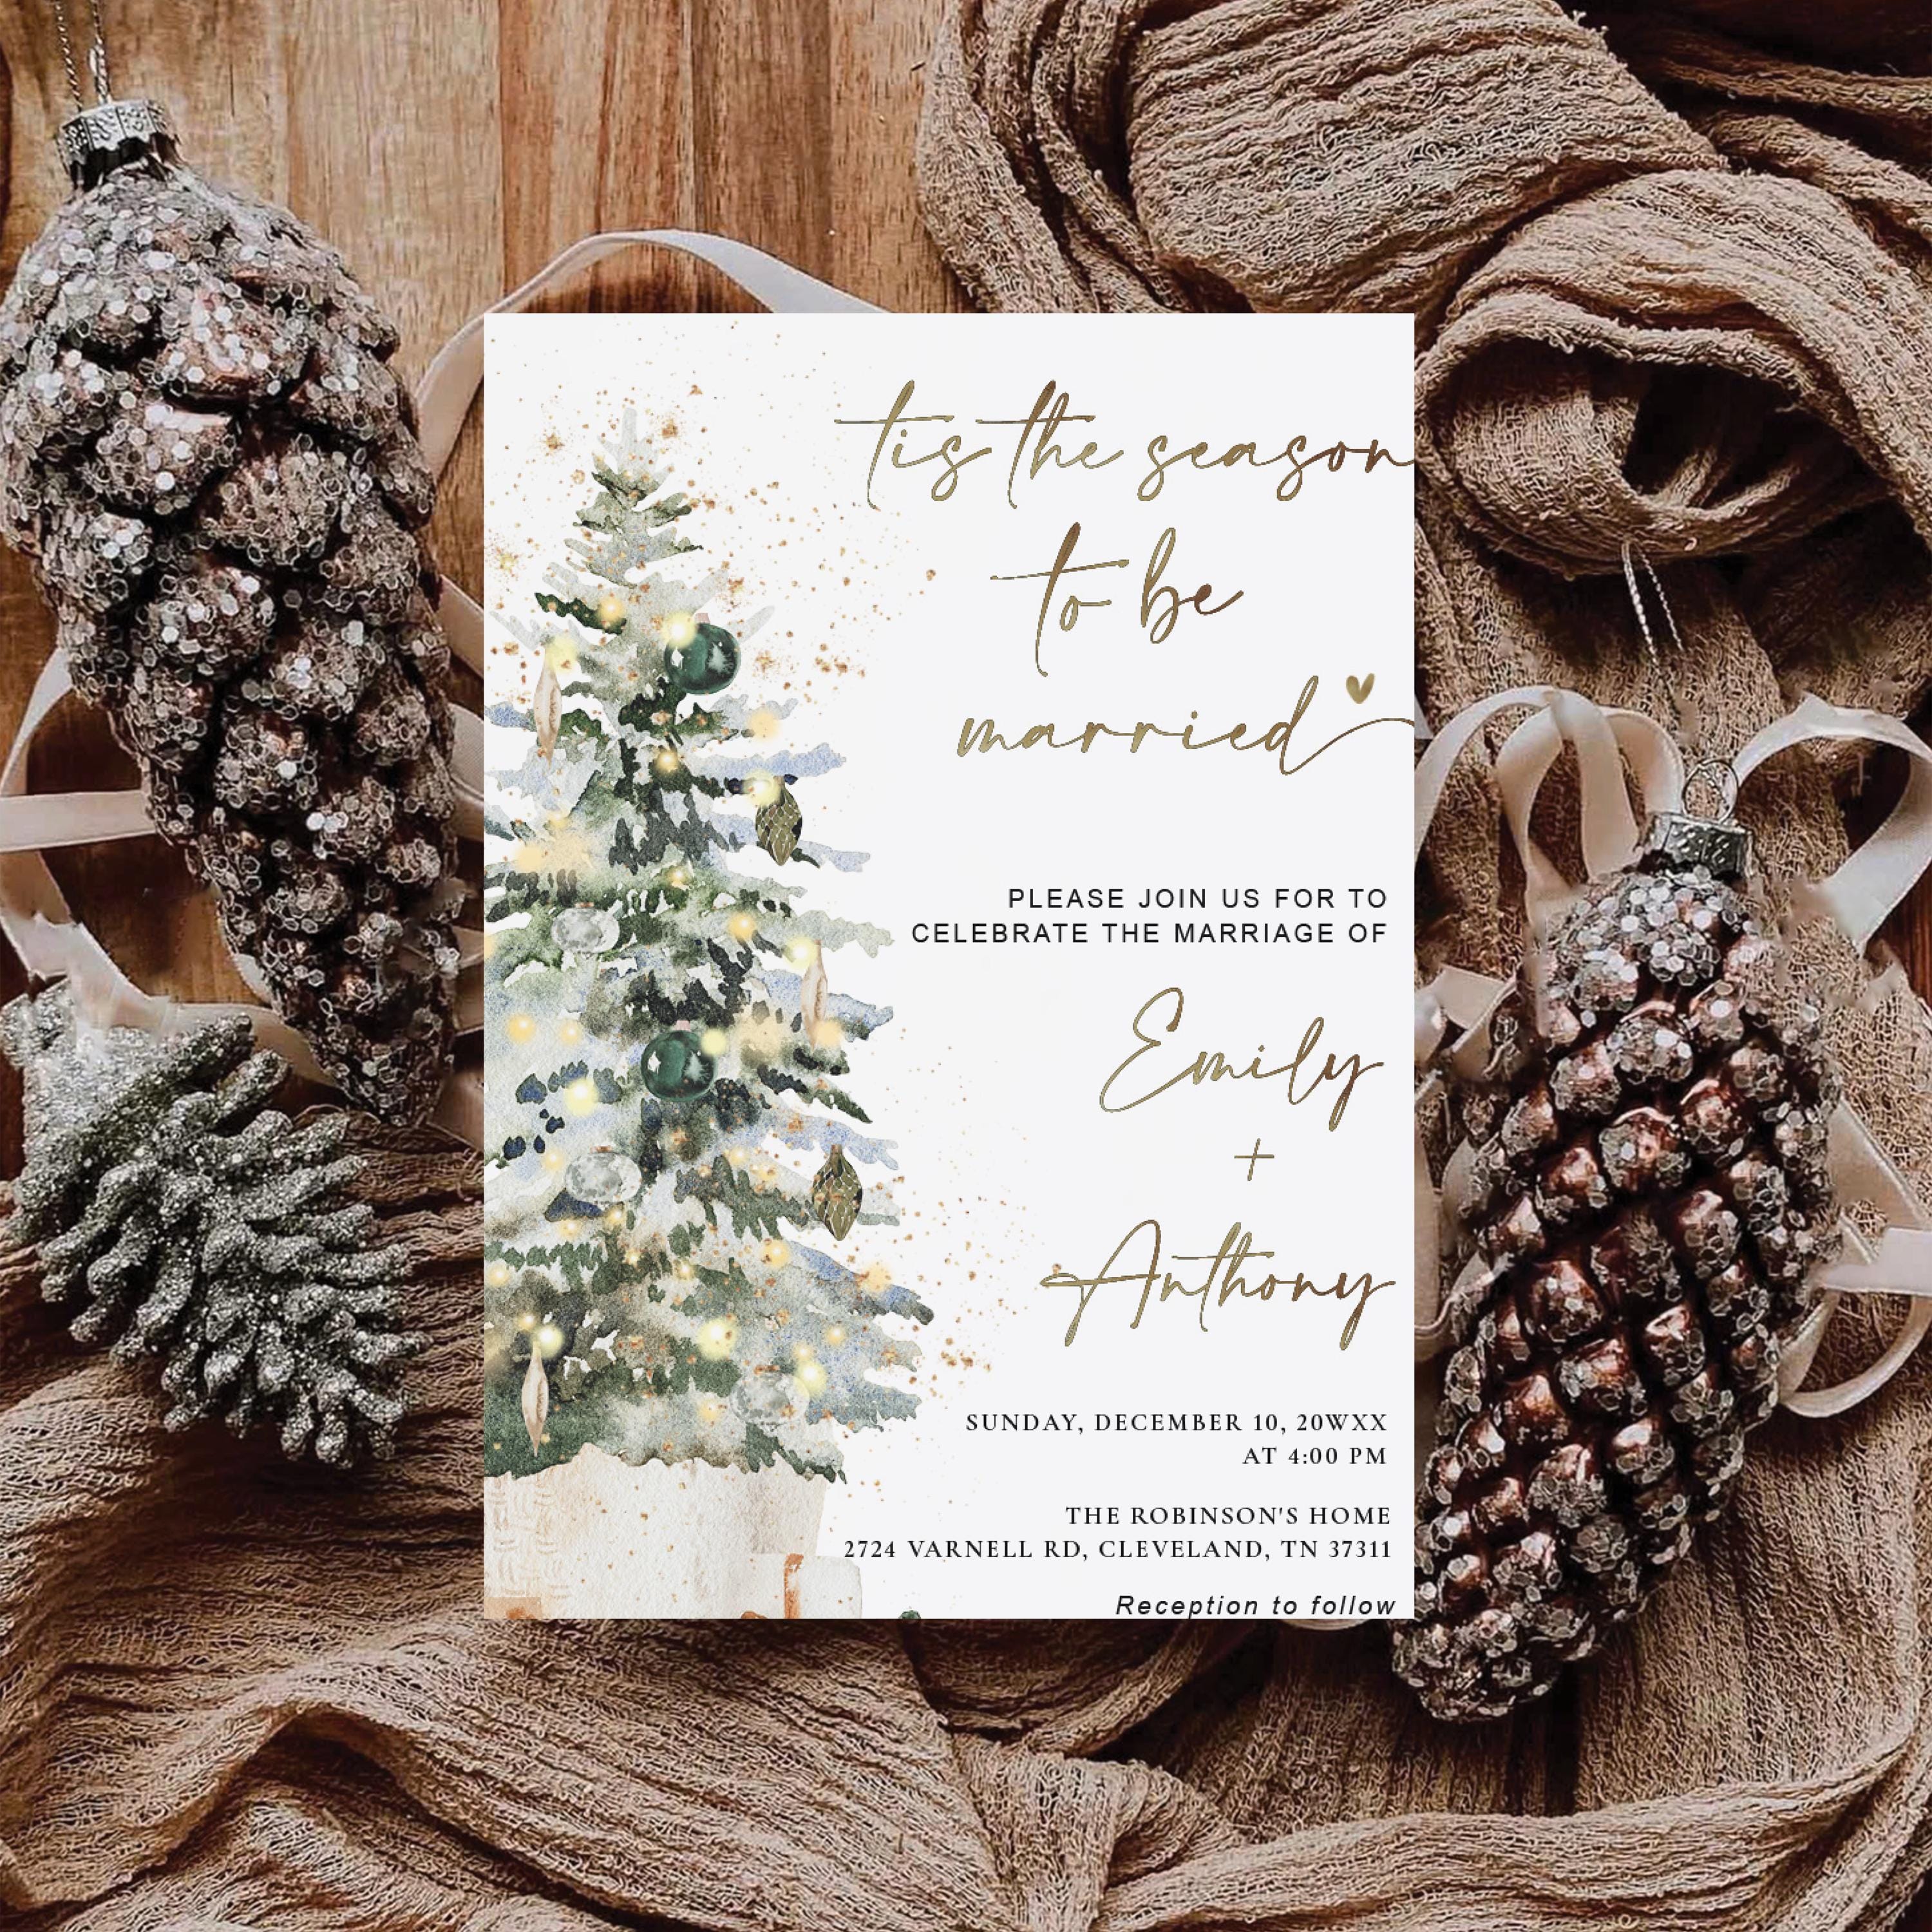 'tis the season
to be
married
PLEASE JOIN US FOR TO
CELEBRATE THE MARRIAGE OF
Emily
+
Anthony
SUNDAY, DECEMBER 10, 20WXX
AT 4:00 PM
THE ROBINSON'S HOME
2724 VARNELL RD, CLEVELAND, TN 37311
Reception to follow